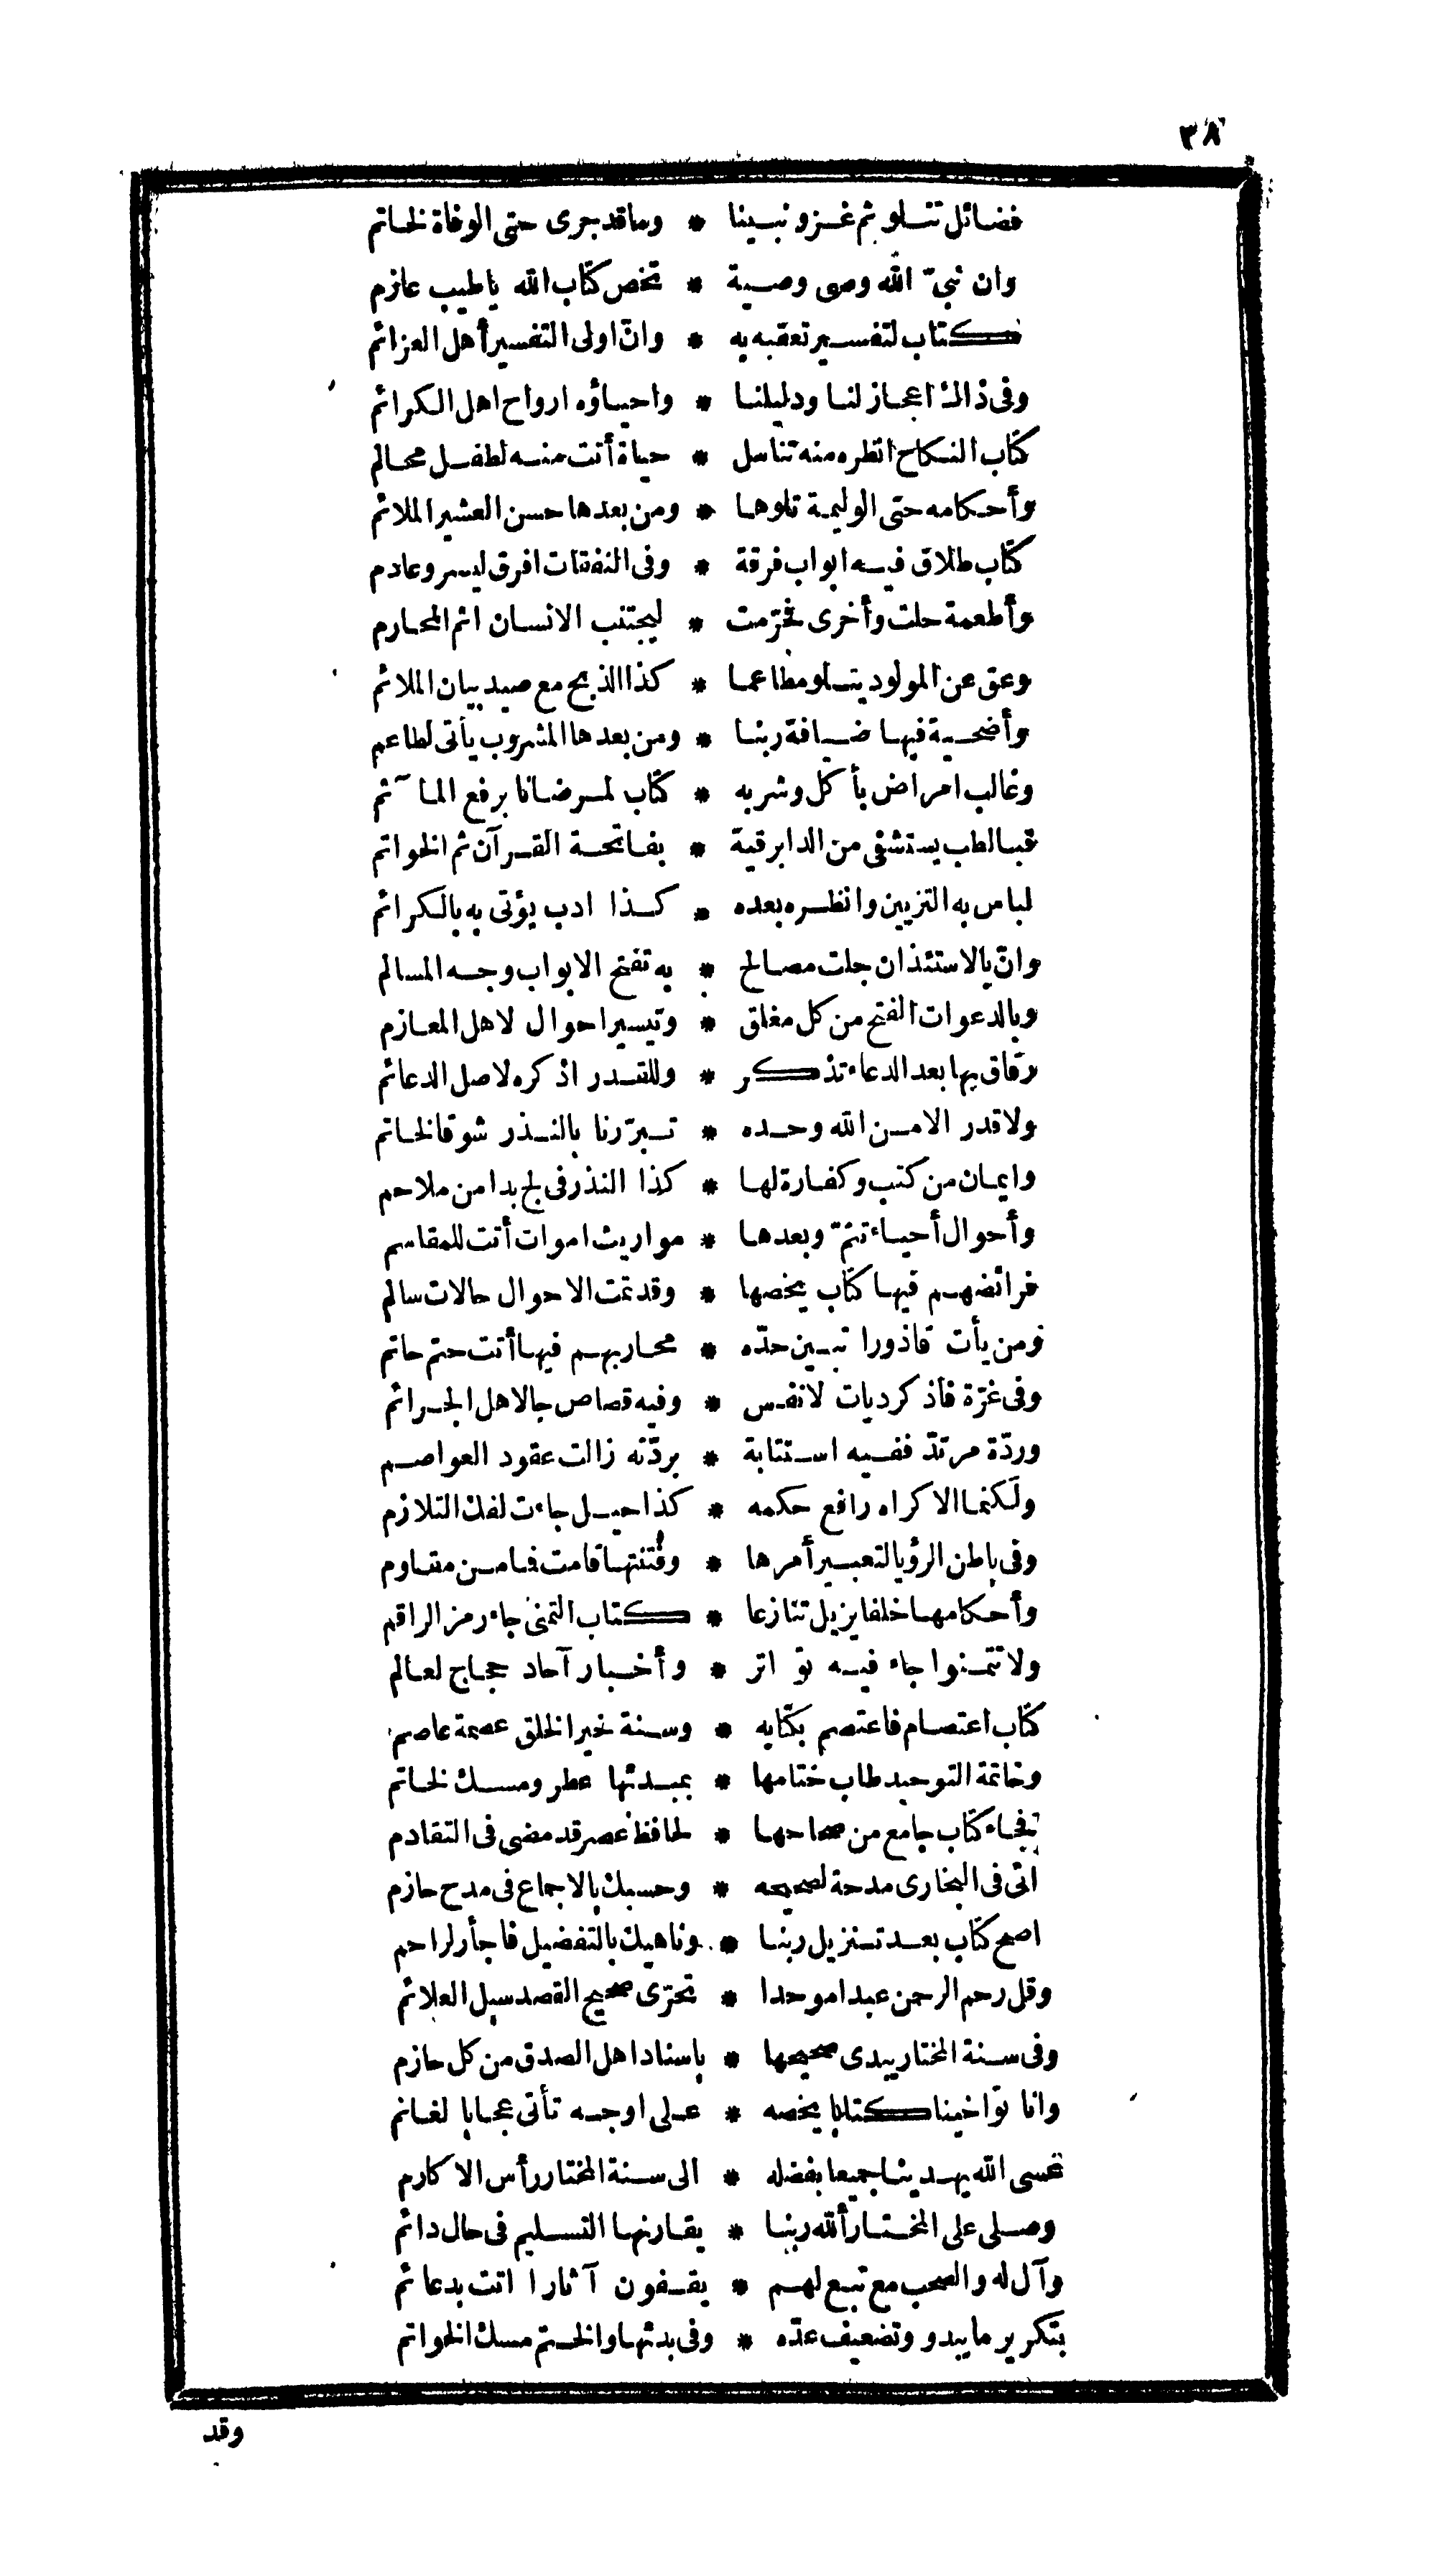 ٣٨
فضائل تتلو ثم غزو نبينا * وما قد جرى حتى الوفاة لخاتم
وان نبىّ الله وصى وصية * تخص كتاب الله ياطيب عازم
كتاب لتفسير تعقبه به * وانّ اولى التفسير أهل العزائم
وفى ذالك اعجاز لنا ودليلنا * واحياؤه ارواح اهل الكرائم
كتاب النكاح انظره منه تناسل * حياة أتت منه لطفل محالم
وأحكامه حتى الوليمة تلوها * ومن بعدها حسن العشير الملائم
كتاب طلاق فيه ابواب فرقة * وفى النفقات افرق ليسر وعادم
وأطعمة حلت وأخرى فحرّمت * ليجتنب الانسان اثم المحارم
وعق عن المولود يتلو مطاعما * كذا الذبح مع صيد بيان الملائم
وأضحية فيها ضيافة ربنا * ومن بعدها المشروب يأتى لطاعم
وغالب امراض بأكل وشربه * كتاب لمرضانا برفع المآثم
فبالطب يستشفى من الدا برقية * بفاتحة القرآن ثم الخواتم
لباس به التزيين وانظره بعده * كذا ادب يؤتى به بالكرائم
وانّ بالاستئذان جلت مصالح * به تفتح الابواب وجه المسالم
وبالدعوات الفتح من كل مغلق * وتيسير احوال لاهل المعازم
رقاق بها بعد الدعاء تذكر * وللقدر اذكره لاصل الدعائم
ولا قدر الا من الله وحده * تبرّرنا بالنذر شوقا لخاتم
وايمان من كتب وكفارة لها * كذا النذر فى لج بدا من ملاحم
وأحوال أحياء تتمّ وبعدها * مواريث اموات أتت للمقاسم
فرائضهم فيها كتاب يخصها * وقد تمت الاحوال حالات سالم
ومن يأت قاذورا تبين حدّه * محاربهم فيها أتت حتم حاتم
وفى غرّة فاذكر ديات لانفس * وفيه قصاص جا لاهل الجرائم
وردّة مرتدّ ففيه استتابة * بردّته زالت عقود العواصم
ولكنما الاكراه رافع حكمه * كذا حيل جاءت لفك التلازم
وفى باطن الرؤيا لتعبير أمرها * وفتنتها قامت فما من مقاوم
وأحكامها خلفا يزيل تنازعا * كتاب التمنى جاء رمز الراقم
ولا تتمنوا جاء فيه تواتر * وأخبار آحاد حجاج لعالم
كتاب اعتصام فاعتصم بكتابه * وسنة خير الخلق عصمة عاصم
وخاتمة التوحيد طاب ختامها * بمبدئها عطر ومسك لخاتم
فجاء كتاب جامع من صحاحها * لحافظ عصر قد مضى فى التقادم
اتى فى البخارى مدحة لصحيحه * وحسبك بالاجماع فى مدح حازم
اصح كتاب بعد تنزيل ربنا * وناهيك بالتفضيل فاجأر لراحم
وقل رحم الرحمن عبدا موحدا * تحرّى صحيح القصد سبل العلائم
وفى سنة المختار يبدى صحيحها * باسناد اهل الصدق من كل حازم
وانا تواخينا كتابا يخصه * على اوجه تأتى عجابا لغانم
عسى الله يهدينا جميعا بفضله * الى سنة المختار رأس الاكارم
وصلى على المختار ألله ربنا * يقارنها التسليم فى حال دائم
وآل له والصحب مع تبع لهم * يقفون آثارا اتت بدعائم
بتكرير ما يبدو وتضعيف عدّه * وفى بدئها والختم مسك الخواتم
وقد